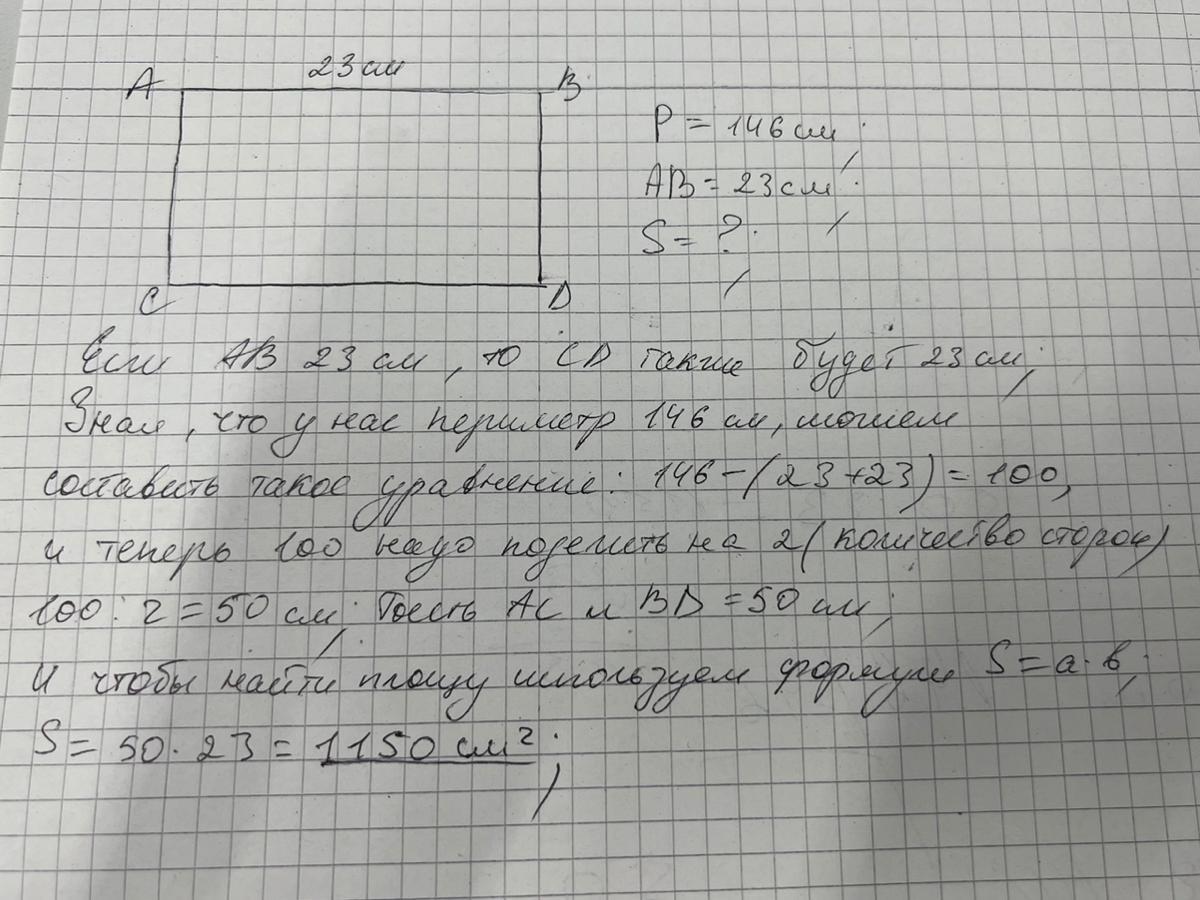 23 см
A
B
P = 146 см;
AB = 23 см;
S = ?;
C
D
Если AB 23 см, то CD также будет 23 см;
Зная, что у нас периметр 146 см, можем
составить такое уравнение: 146-(23+23)=100,
и теперь 100 надо поделить на 2 (количество сторон)
100:2=50 см; Тоесть AC и BD=50 см;
И чтобы найти площу используем формулу S=a·b;
S= 50·23 = 1150 см²;